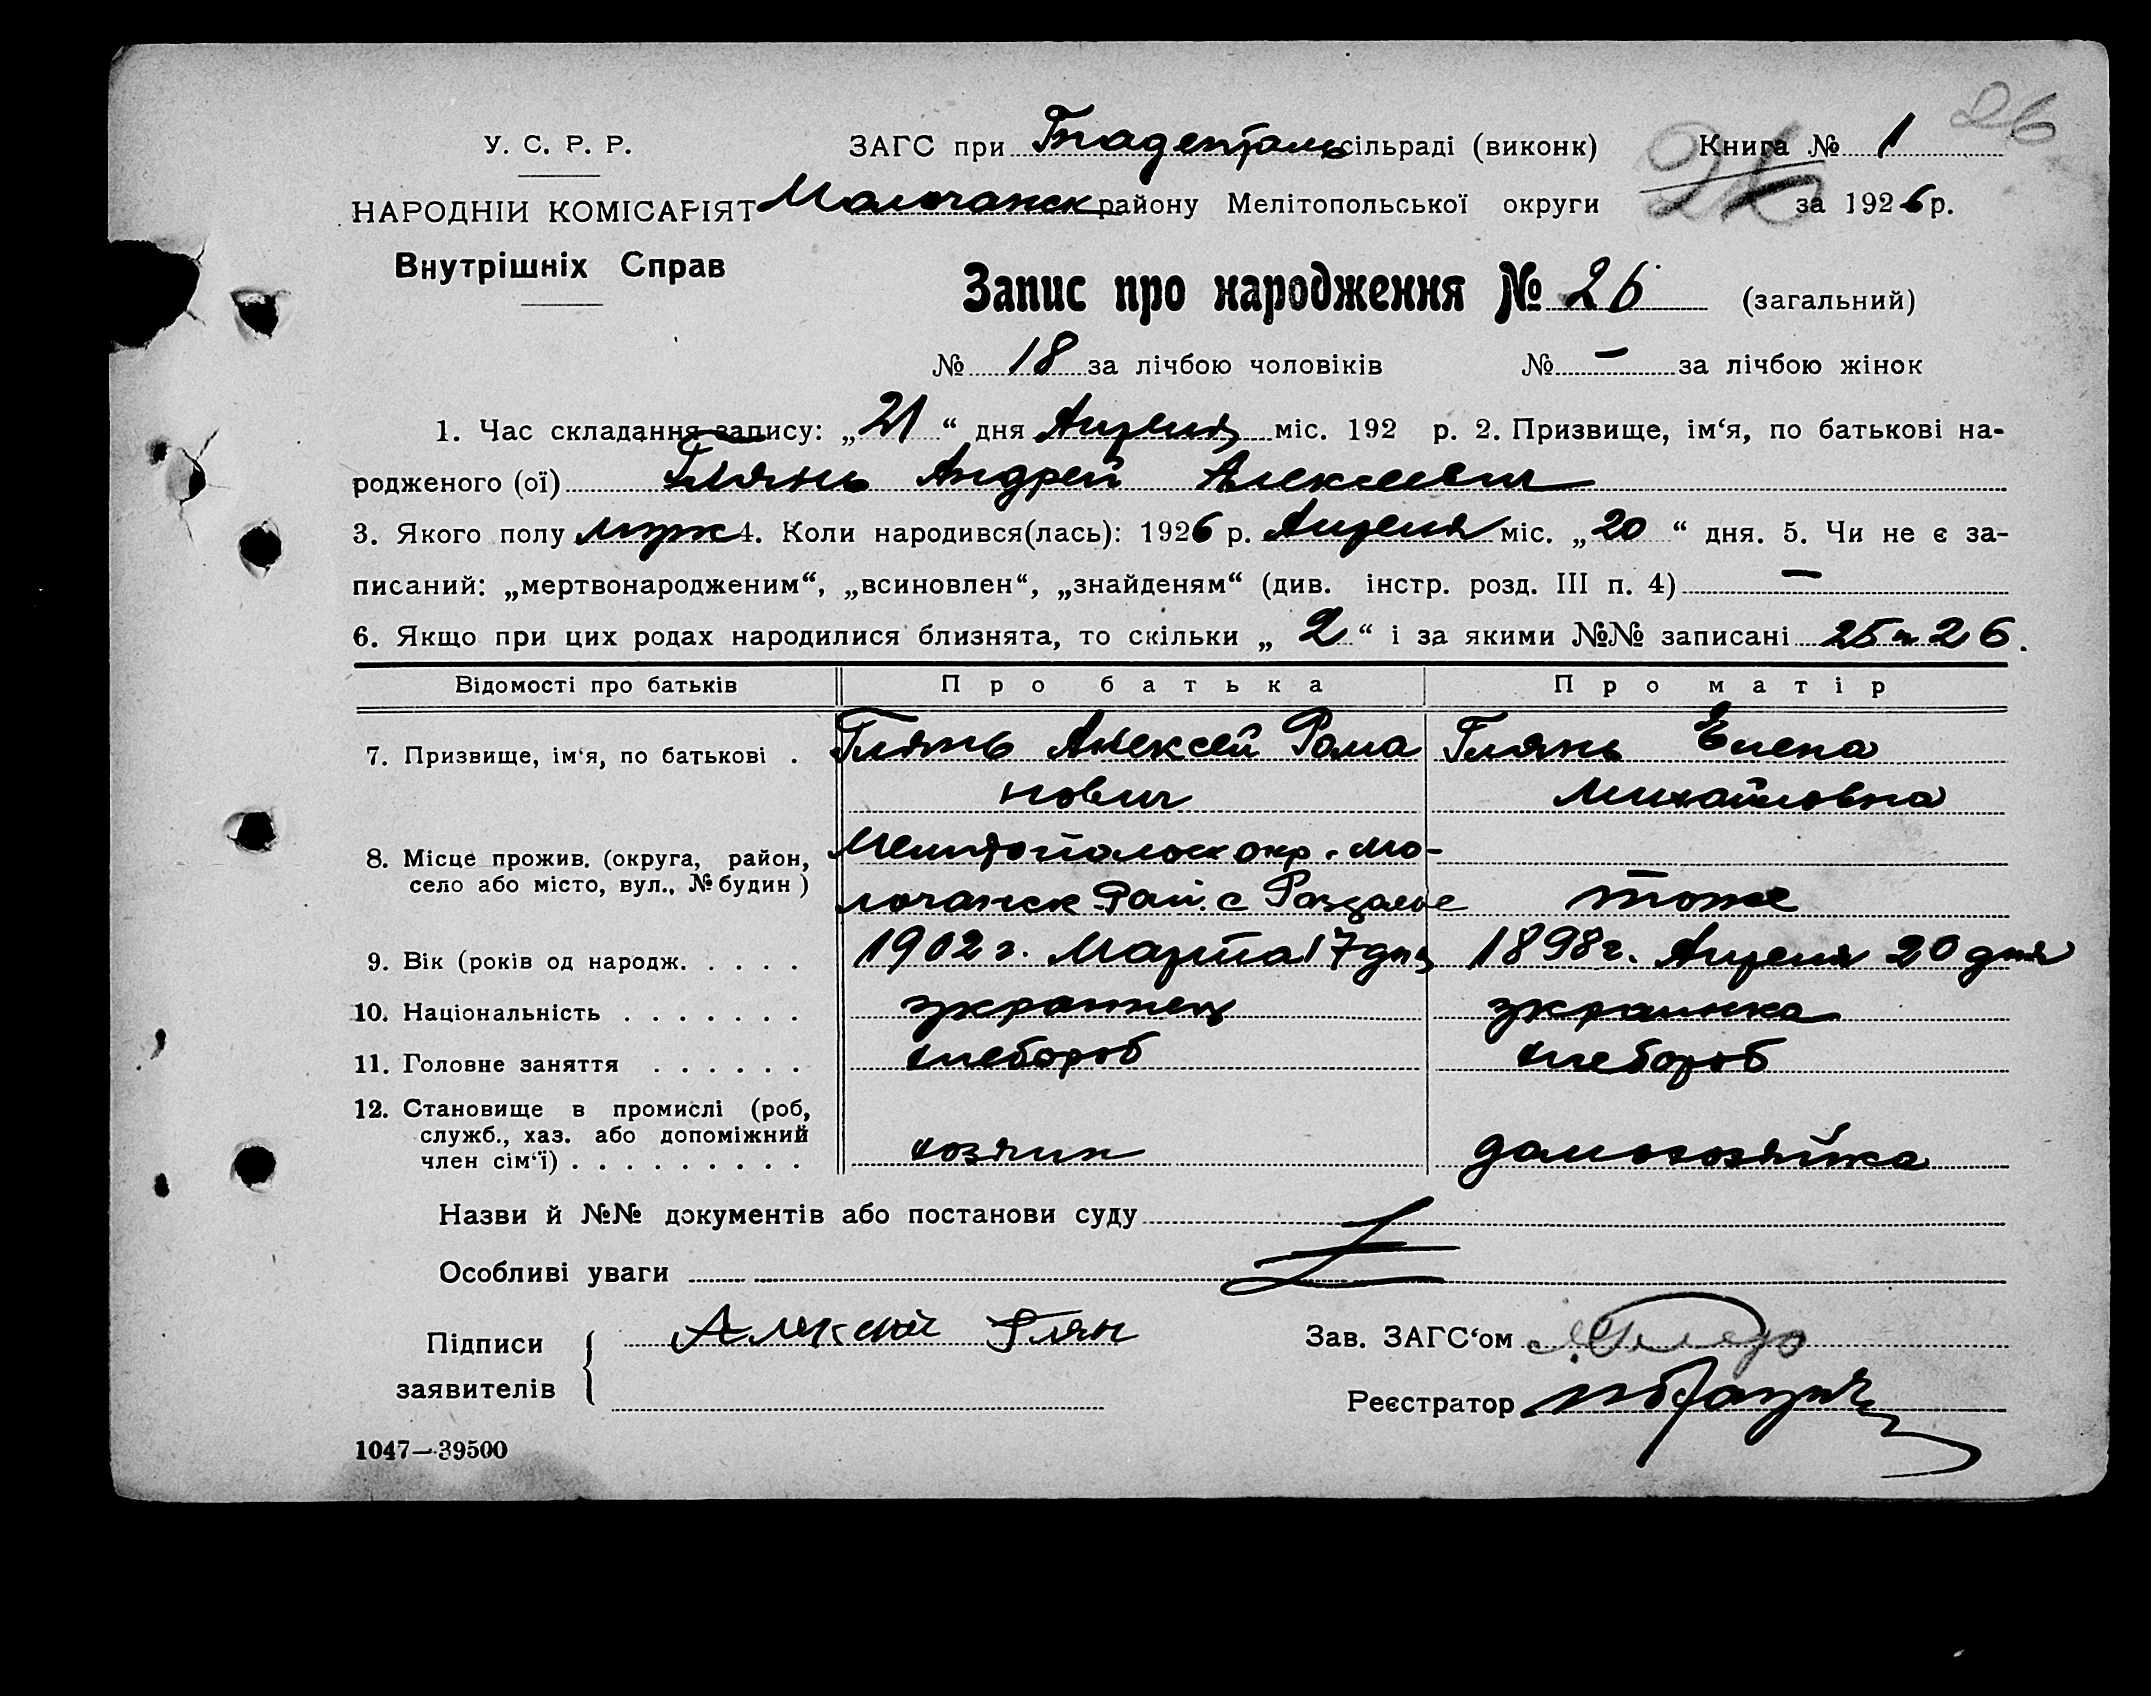 26
У. С. Р. Р. ЗАГС при Гнаденталь сільраді (виконк) Книга № 1
НАРОДНІЙ КОМІСАРІЯТ Молочанск району Мелітопольської округи за 1926 р.
Внутрішніх Справ
Запис про народження № 26 (загальний)
№ 18 за лічбою чоловіків № – за лічбою жінок
1. Час складання запису: „21“ дня Апреля міс. 192 р. 2. Призвище, ім‘я, по батькові на-
родженого (ої) Глянь Андрей Алексеевич
3. Якого полу муж 4. Коли народився(лась): 1926 р. Апреля міс. „20“ дня. 5. Чи не є за-
писаний: „мертвонародженим“, „всиновлен“, „знайденям“ (див. інстр. розд. III п. 4) –
6. Якщо при цих родах народилися близнята, то скільки „2“ і за якими №№ записані 25 и 26.
Відомості про батьків Про батька Про матір
7. Призвище, ім‘я, по батькові . Глянь Алексей Рома Глянь Елена
нович Михайловна
8. Місце прожив. (округа, район, Мелитопольск окр. Мо-
село або місто, вул., № будин ) лочанск Рай. с Роздолье тоже
9. Вік (років од народж. . . . . 1902 г. Марта 17 дня 1898 г. Апреля 20 дня
10. Національність . . . . . . . украинец украинка
11. Головне заняття . . . . . . хлебороб хлебороб
12. Становище в промислі (роб,
служб., хаз. або допоміжний
член сім‘ї) . . . . . . . . . хозяин домохозяйка
Назви й №№ документів або постанови суду
Особливі уваги
Підписи Алексей Глян Зав. ЗАГС‘ом
заявителів Реєстратор
1047—39500